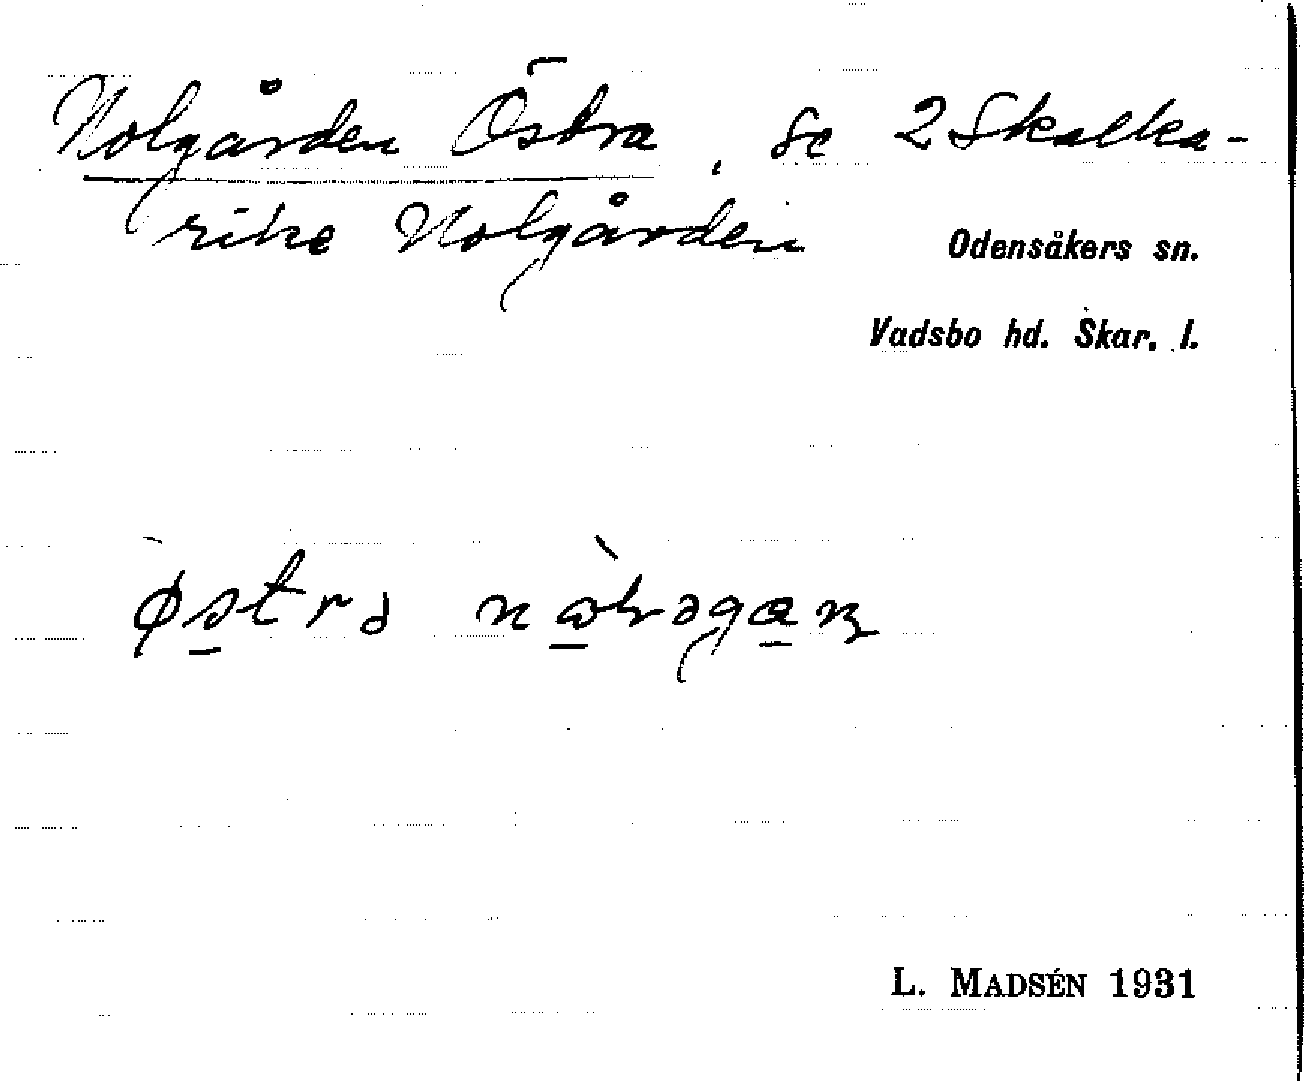 Nolgården Östra, se 2 Skalka-
rike Nolgården
Odensåkers sn.
Vadsbo hd. Skar. l.
L. MADSÉN 1931